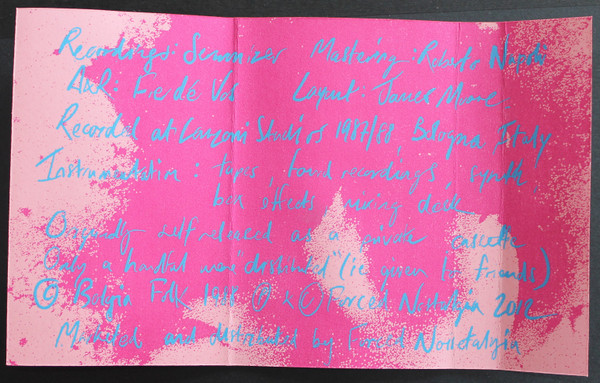 Recordings: Mastering: Roberto Napoli
A&R: Fré dé Vos Layout: James
Recorded at Studios 1987/88, Bologna, Italy
Instrumentation: tapes, found recordings, synth,
box effects, mixing desk
Originally self released as a private cassette
Only a handful were "distributed" (ie given to friends)
© Folk 1988 ℗ & © Forced Nostalgia 2012
Marketed and distributed by Forced Nostalgia